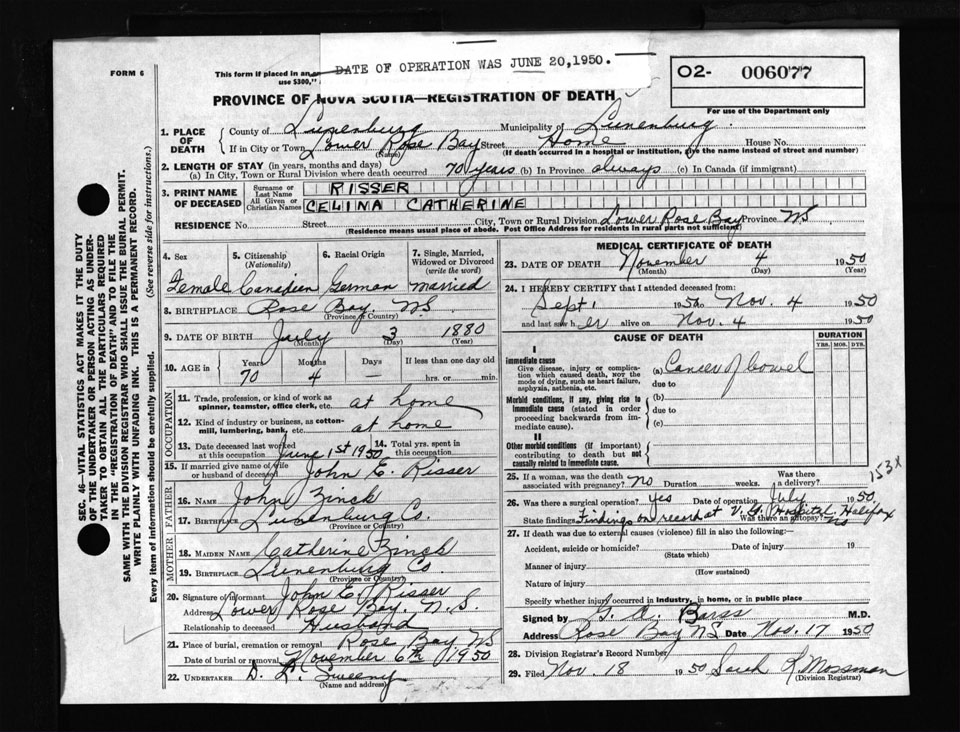 DATE OF OPERATION WAS JUNE 20,1950.
FORM 6
This form if placed in an
use $300,"
02- 006077
For use of the Department only
PROVINCE OF NOVA SCOTIA—REGISTRATION OF DEATH
1. PLACE OF DEATH County of Lunenburg Municipality of Lunenburg
If in City or Town Lower Rose Bay Street Home House No.
(Name) (If death occurred in a hospital or institution, give the name instead of street and number)
2. LENGTH OF STAY (in years, months and days)
(a) In City, Town or Rural Division where death occurred 70 years (b) In Province always (c) In Canada (if immigrant)
3. PRINT NAME OF DECEASED Surname or Last Name RISSER
All Given or Christian Names CELINA CATHERINE
RESIDENCE No. Street City, Town or Rural Division Lower Rose Bay Province NS
(Residence means usual place of abode. Post Office Address for residents in rural parts not sufficient)
4. Sex 5. Citizenship (Nationality) 6. Racial Origin 7. Single, Married, Widowed or Divorced (write the word)
Female Canadian German Married
8. BIRTHPLACE Rose Bay, NS
(Province or Country)
9. DATE OF BIRTH July 3 1880
(Month) (Day) (Year)
10. AGE in Years Months Days If less than one day old
70 4 — hrs. or min.
OCCUPATION
11. Trade, profession, or kind of work as spinner, teamster, office clerk, etc. at home
12. Kind of industry or business, as cotton-mill, lumbering, bank, etc. at home
13. Date deceased last worked at this occupation June 1st 1950 14. Total yrs. spent in this occupation
15. If married give name of wife or husband of deceased John E. Risser
FATHER
16. NAME John Zinck
17. BIRTHPLACE Lunenburg Co.
(Province or Country)
MOTHER
18. MAIDEN NAME Catherine Zinck
19. BIRTHPLACE Lunenburg Co
(Province or Country)
20. Signature of informant John E. Risser
Address Lower Rose Bay. N.S.
Relationship to deceased Husband
21. Place of burial, cremation or removal Rose Bay NS
Date of burial or removal November 6th 1950
22. UNDERTAKER D. L. Sweeny
(Name and address)
MEDICAL CERTIFICATE OF DEATH
23. DATE OF DEATH November 4 1950
(Month) (Day) (Year)
24. I HEREBY CERTIFY that I attended deceased from:
Sept 1 1950 to Nov. 4 1950
and last saw her alive on Nov. 4 1950
CAUSE OF DEATH DURATION
YRS. MOS. DYS.
I
Immediate cause
Give disease, injury or complication which caused death, NOT the mode of dying, such as heart failure, asphyxia, asthenia, etc.
(a) Cancer of bowel
due to
Morbid conditions, if any, giving rise to immediate cause (stated in order proceeding backwards from immediate cause).
(b)
due to
(c)
II
Other morbid conditions (if important) contributing to death but not causally related to immediate cause.
153X
25. If a woman, was the death associated with pregnancy? No Duration weeks. Was there a delivery?
26. Was there a surgical operation? Yes Date of operation July 1950
State findings Findings on record at V.G. Hospital Halifax Was there an autopsy? No
27. If death was due to external causes (violence) fill in also the following:—
Accident, suicide or homicide? Date of injury 19
(State which)
Manner of injury
(How sustained)
Nature of injury
Specify whether injury occurred in industry, in home, or in public place
Signed by Barss M.D.
Address Rose Bay NS Date Nov. 17 1950
28. Division Registrar's Record Number
29. Filed Nov. 18 1950 Sarah K Mossman
(Division Registrar)
SEC. 46—VITAL STATISTICS ACT MAKES IT THE DUTY
OF THE UNDERTAKER OR PERSON ACTING AS UNDER-
TAKER TO OBTAIN ALL THE PARTICULARS REQUIRED
IN THE "REGISTRATION OF DEATH" AND TO FILE THE
SAME WITH THE DIVISION REGISTRAR WHO SHALL ISSUE THE BURIAL PERMIT.
WRITE PLAINLY WITH UNFADING INK. THIS IS A PERMANENT RECORD.
Every item of information should be carefully supplied. (See reverse side for instructions.)